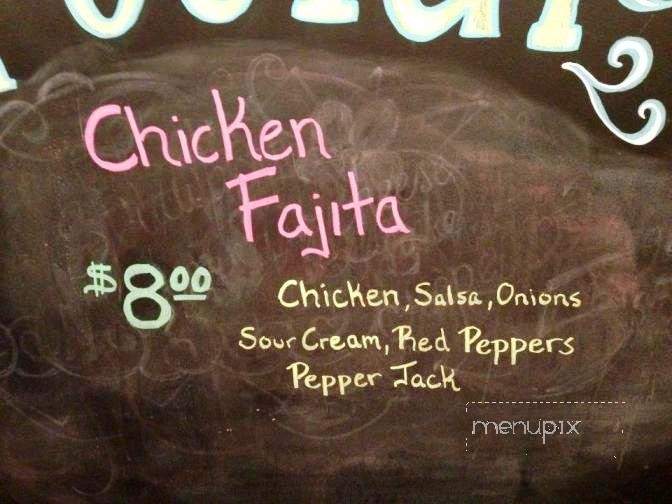 Chicken
Fajita
$8.00
Chicken, Salsa, Onions
Sour Cream, Red Peppers
Pepper Jack
menupix